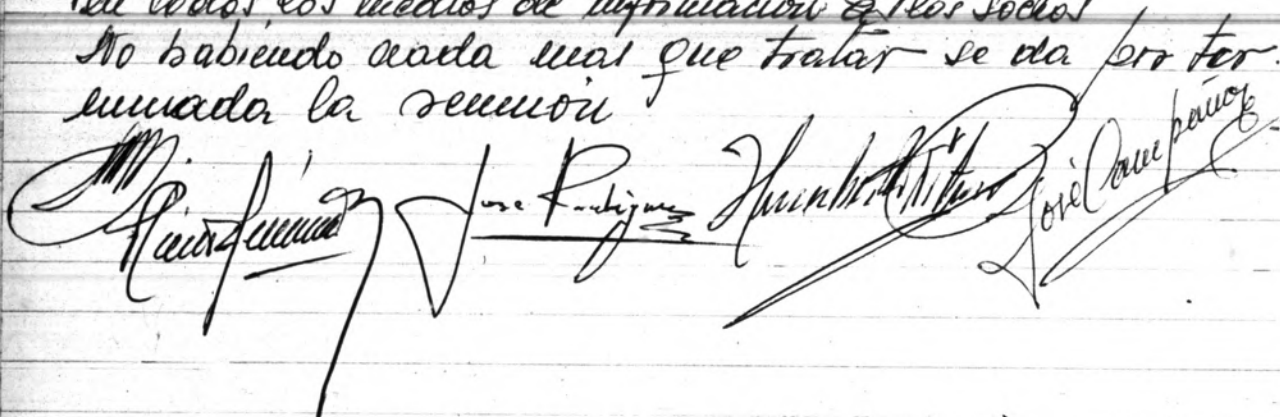 en todos los medios de información a los socios
No habiendo nada mas que tratar se da por ter-
minada la reunión
Jose Rodriguez
José Campañez